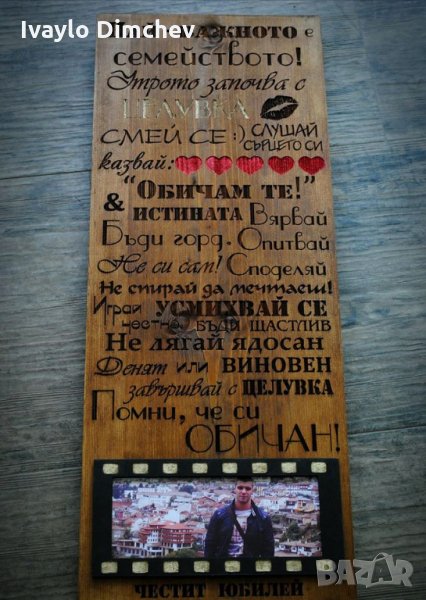 Ivaylo Dimchev
ВАЖНОТО е
семейството!
Утрото започва с
ЦЕЛУВКА
СМЕЙ СЕ :) СЛУШАЙ
СЪРЦЕТО СИ
казвай:
"ОБИЧАМ ТЕ!"
& ИСТИНАТА Вярвай
Бъди горд. Опитвай
Не си сам! Споделяй
Не спирай да мечтаеш!
Играй УСМИХВАЙ СЕ
честно. БЪДИ ЩАСТЛИВ
Не лягай ядосан
Денят или ВИНОВЕН
завършвай с ЦЕЛУВКА
Помни, че си
ОБИЧАН!
ЧЕСТИТ ЮБИЛЕЙ
BAZAR